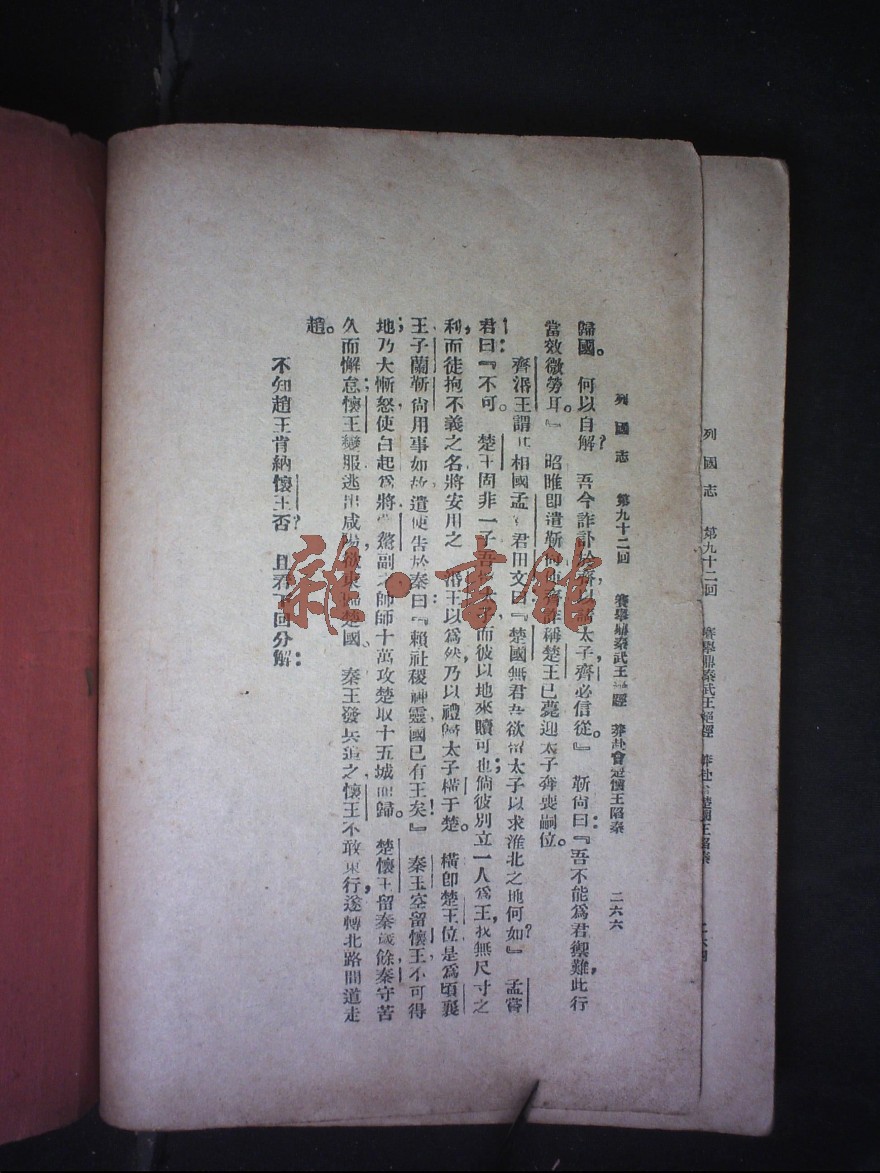 列國志 第九十二回 賽舉鼎秦武王絕脛 莽赴會楚懷王陷秦 二六六
歸國。何以自解？吾今詐訃於齊以請太子，齊必信從。』靳尚曰：『吾不能爲君禦難，此行
當效微勞耳。』昭睢卽遣靳尚使齊，詐稱楚王已薨，迎太子奔喪嗣位。
齊湣王謂其相國孟嘗君田文曰：『楚國無君，吾欲留太子以求淮北之地何如？』孟嘗
君曰：『不可。楚王固非一子，吾留太子而彼以地來贖可也；倘彼別立一人爲王，我無尺寸之
利，而徒抱不義之名，將安用之』湣王以爲然，乃以禮歸太子橫于楚。橫卽楚王位，是爲頃襄
王，子蘭靳尚用事如故，遣使告於秦曰：『賴社稷神靈，國已有王矣！』秦王空留懷王，不可得
地；乃大慚怒，使白起爲將，蒙驁副之，帥師十萬攻楚，取十五城而歸。楚懷王留秦歲餘，秦守苦
久而懈怠；懷王變服，逃出咸陽，欲東歸楚國。秦王發兵追之，懷王不敢東行，遂轉北路，間道走
趙。
不知趙王肯納懷王否？且看下回分解：
列國志 第九十二回
雜·書館